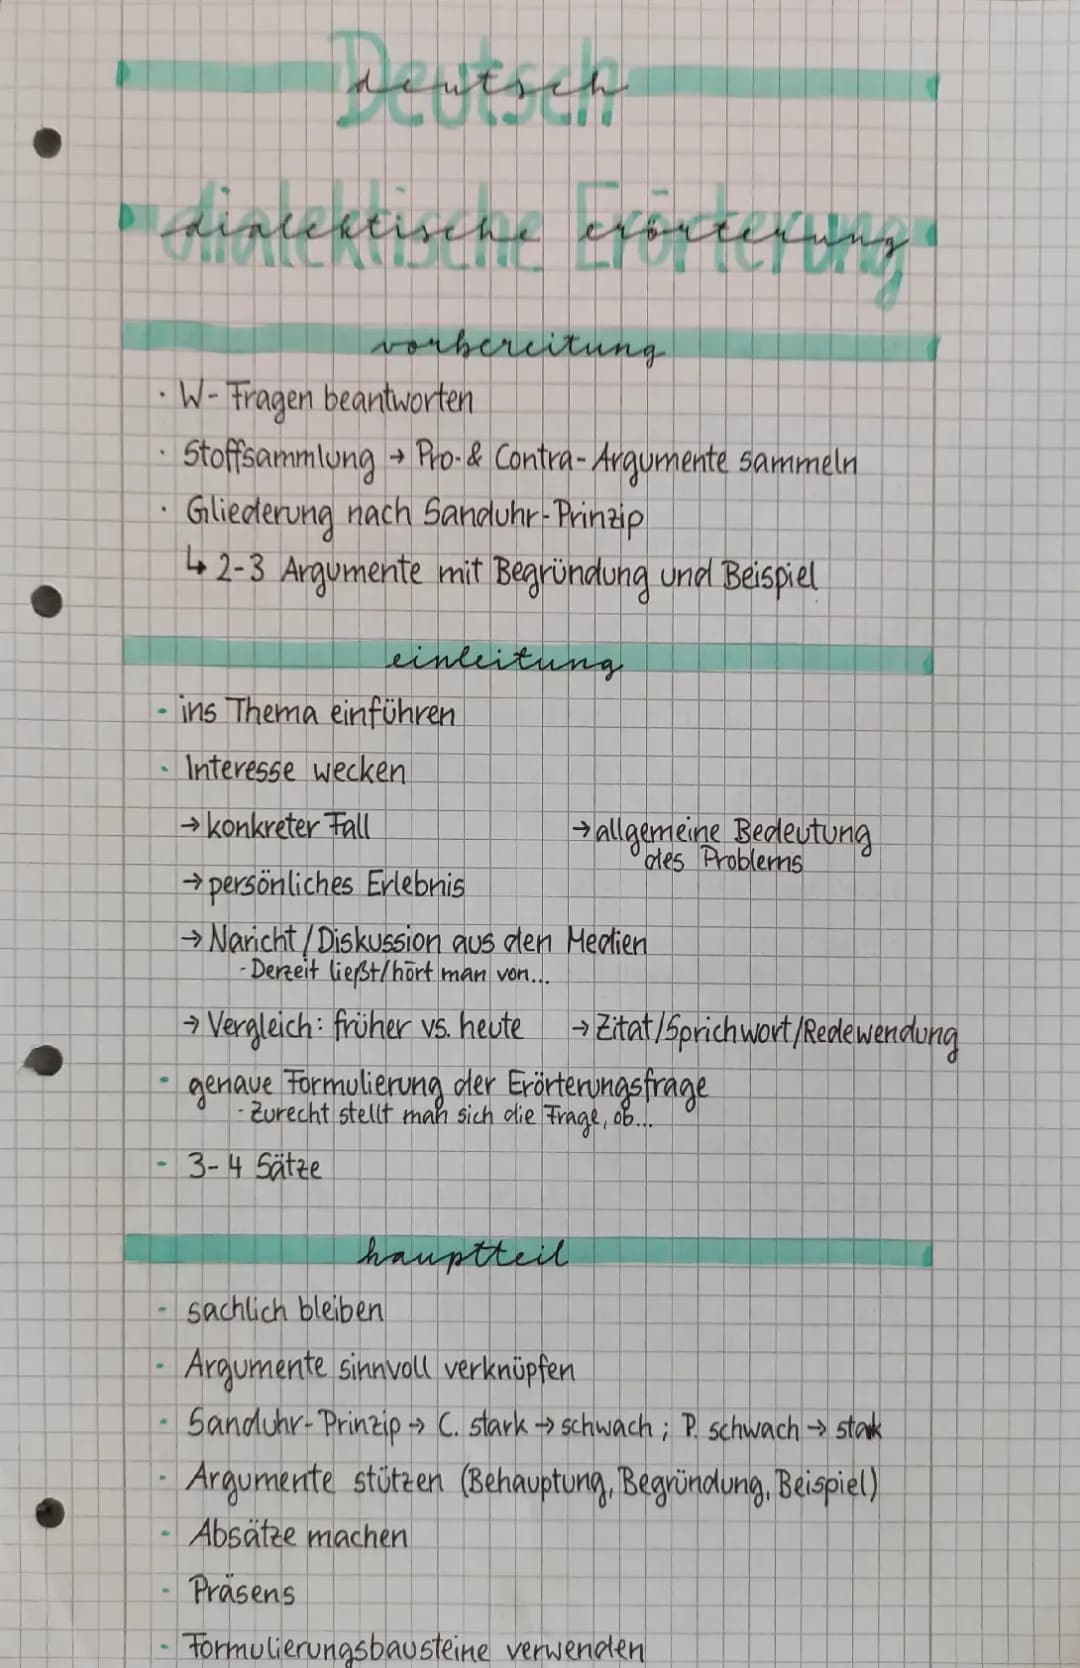 Deutsch
dialektische Erörterung
vorbereitung
· W-Fragen beantworten
· Stoffsammlung → Pro- & Contra-Argumente sammeln
· Gliederung nach Sanduhr-Prinzip
↳ 2-3 Argumente mit Begründung und Beispiel
einleitung
- ins Thema einführen
- Interesse wecken
→ konkreter Fall → allgemeine Bedeutung
des Problems
→ persönliches Erlebnis
→ Naricht/Diskussion aus den Medien
- Derzeit ließt/hört man von...
→ Vergleich: früher vs. heute → Zitat/Sprichwort/Redewendung
- genaue Formulierung der Erörterungsfrage
- Zurecht stellt man sich die Frage, ob...
- 3-4 Sätze
hauptteil
- sachlich bleiben
- Argumente sinnvoll verknüpfen
- Sanduhr-Prinzip → C. stark → schwach ; P. schwach → stak
- Argumente stützen (Behauptung, Begründung, Beispiel)
- Absätze machen
- Präsens
- Formulierungsbausteine verwenden